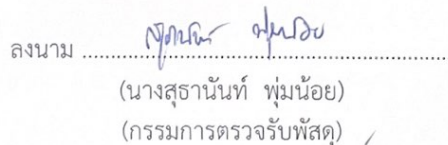 ลงนาม ........................................................................
(นางสุธานันท์ พุ่มน้อย)
(กรรมการตรวจรับพัสดุ)